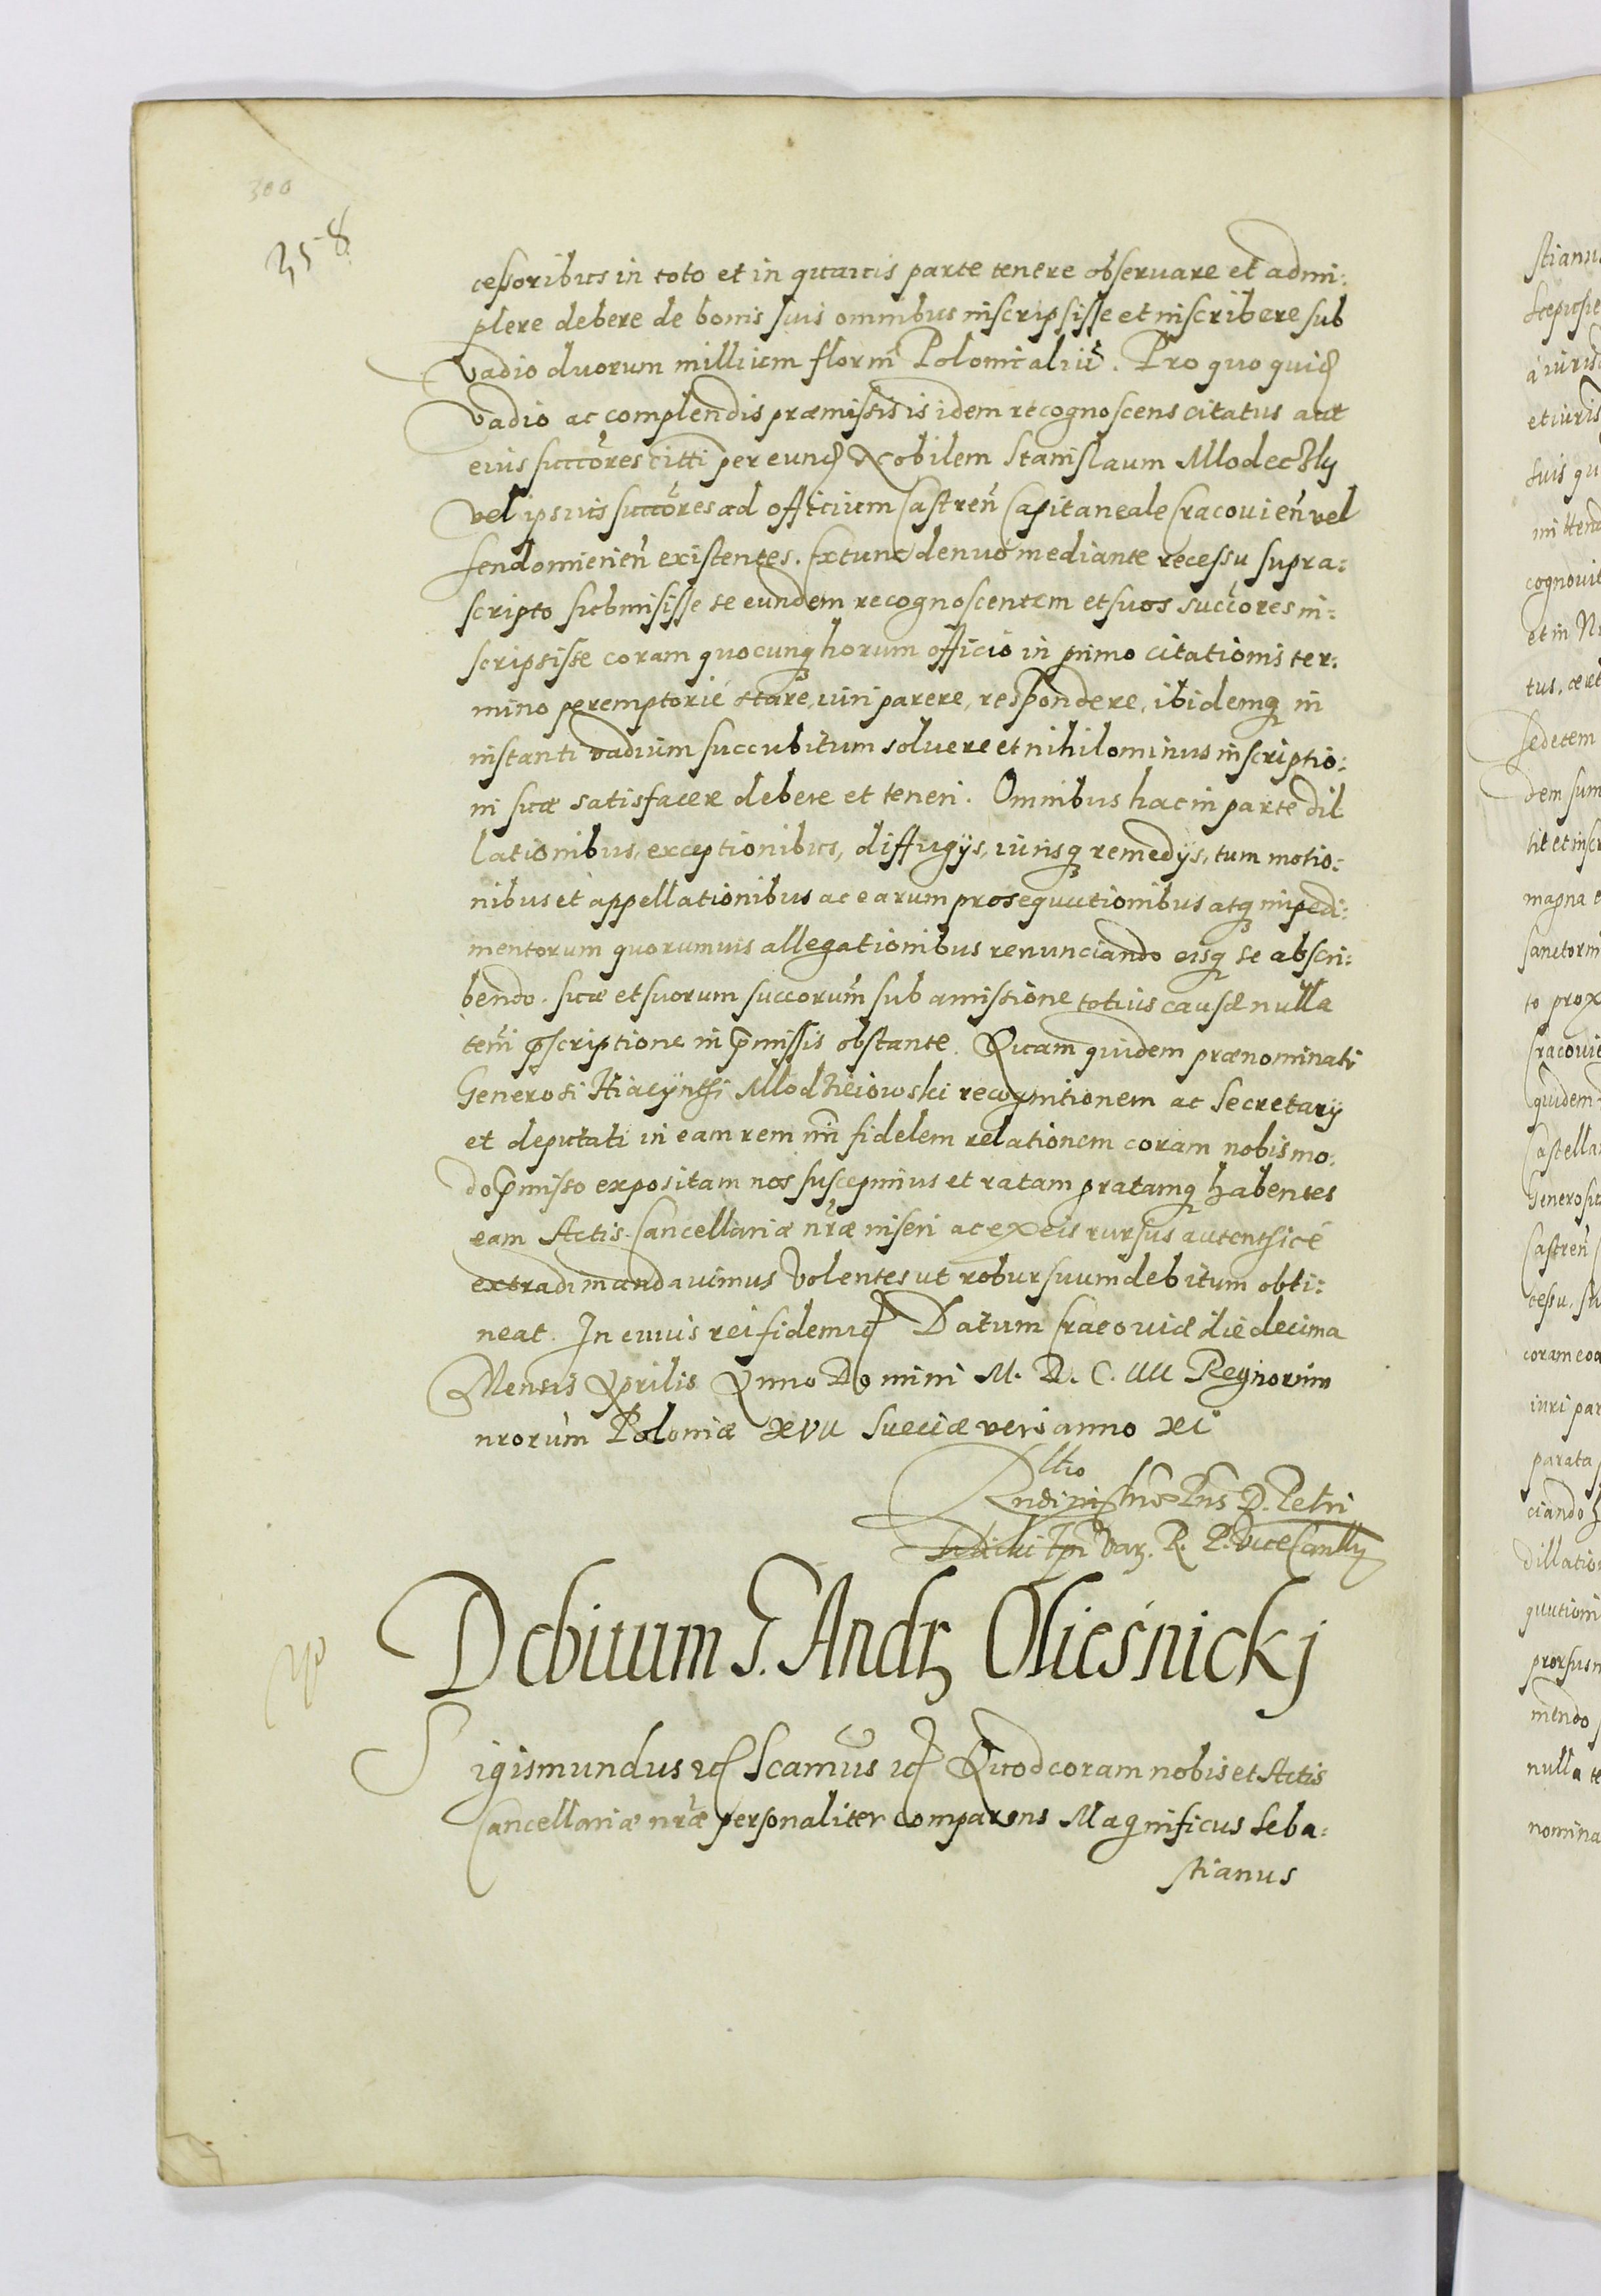 300
358
cessoribus in toto et in quauis parte tenere obseruare et admi:
plere debere de bonis suis omnibus inscripsisse et inscribere sub
vadio duorum millium florñ Polonicaliũ. Pro quo quid
vadio ac complendis præmissis is idem recognoscens citatus aut
eius succores citti per eund Nobilem Stanislaum Mlodeczky
vel ipsius succores ad officium Castreñ Capitaneale Cracouieñ vel
Sendomirieñ existentes. Extunc denuo mediante recessu supra:
scripto submisisse se eundem recognoscentem et suos succores in:
scripsisse coram quocunq horum officio in primo citationis ter:
mino peremptorié stare, iuri parere, respondere, ibidemq in
instanti vadium succubitum soluere et nihilominus inscriptio:
ni suæ satisfacere debere et teneri. Omnibus hac in parte dil
lationibus, exceptionibus, diffugÿs, iurisq remedÿs, tum motio:
nibus et appellationibus ac earum prosequutionibus atq impedi:
mentorum quorumuis allegationibus renunciando eisq se abscri:
bendo. suæ et suorum succorum̃ sub amissione totius causæ nulla
terñi pscriptione in pmissis obstante. Quam quidem prænominati
Generosi Hiacÿnthi Mlodzieiowski recognitionem ac Secretarÿ
et deputati in eam rem nñi fidelem relationem coram nobis mo:
do pmisso expositam nos suscepimus et ratam gratamq habentes
eam Actis Cancellariæ nr̃æ inseri ac ex eis rursus autenthicé
extradi mandauimus Volentes ut robur suum debitum obti:
neat. In cuius rei fidem etc Datum Cracouiæ die decima
Mensis Aprilis Anno Domini M. D. C. IIII Regnorum
nrorum̃ Poloniæ XVII Sueciæ vero anno XI
D. Petri
R. P. ViceCanlly
Debitum G. Andr. Oliesnickj
Sigismundus etc Scamus̃ etc Quod coram nobis et Actis
Cancellariæ nr̃æ personaliter comparens Magnificus Seba:
stianus